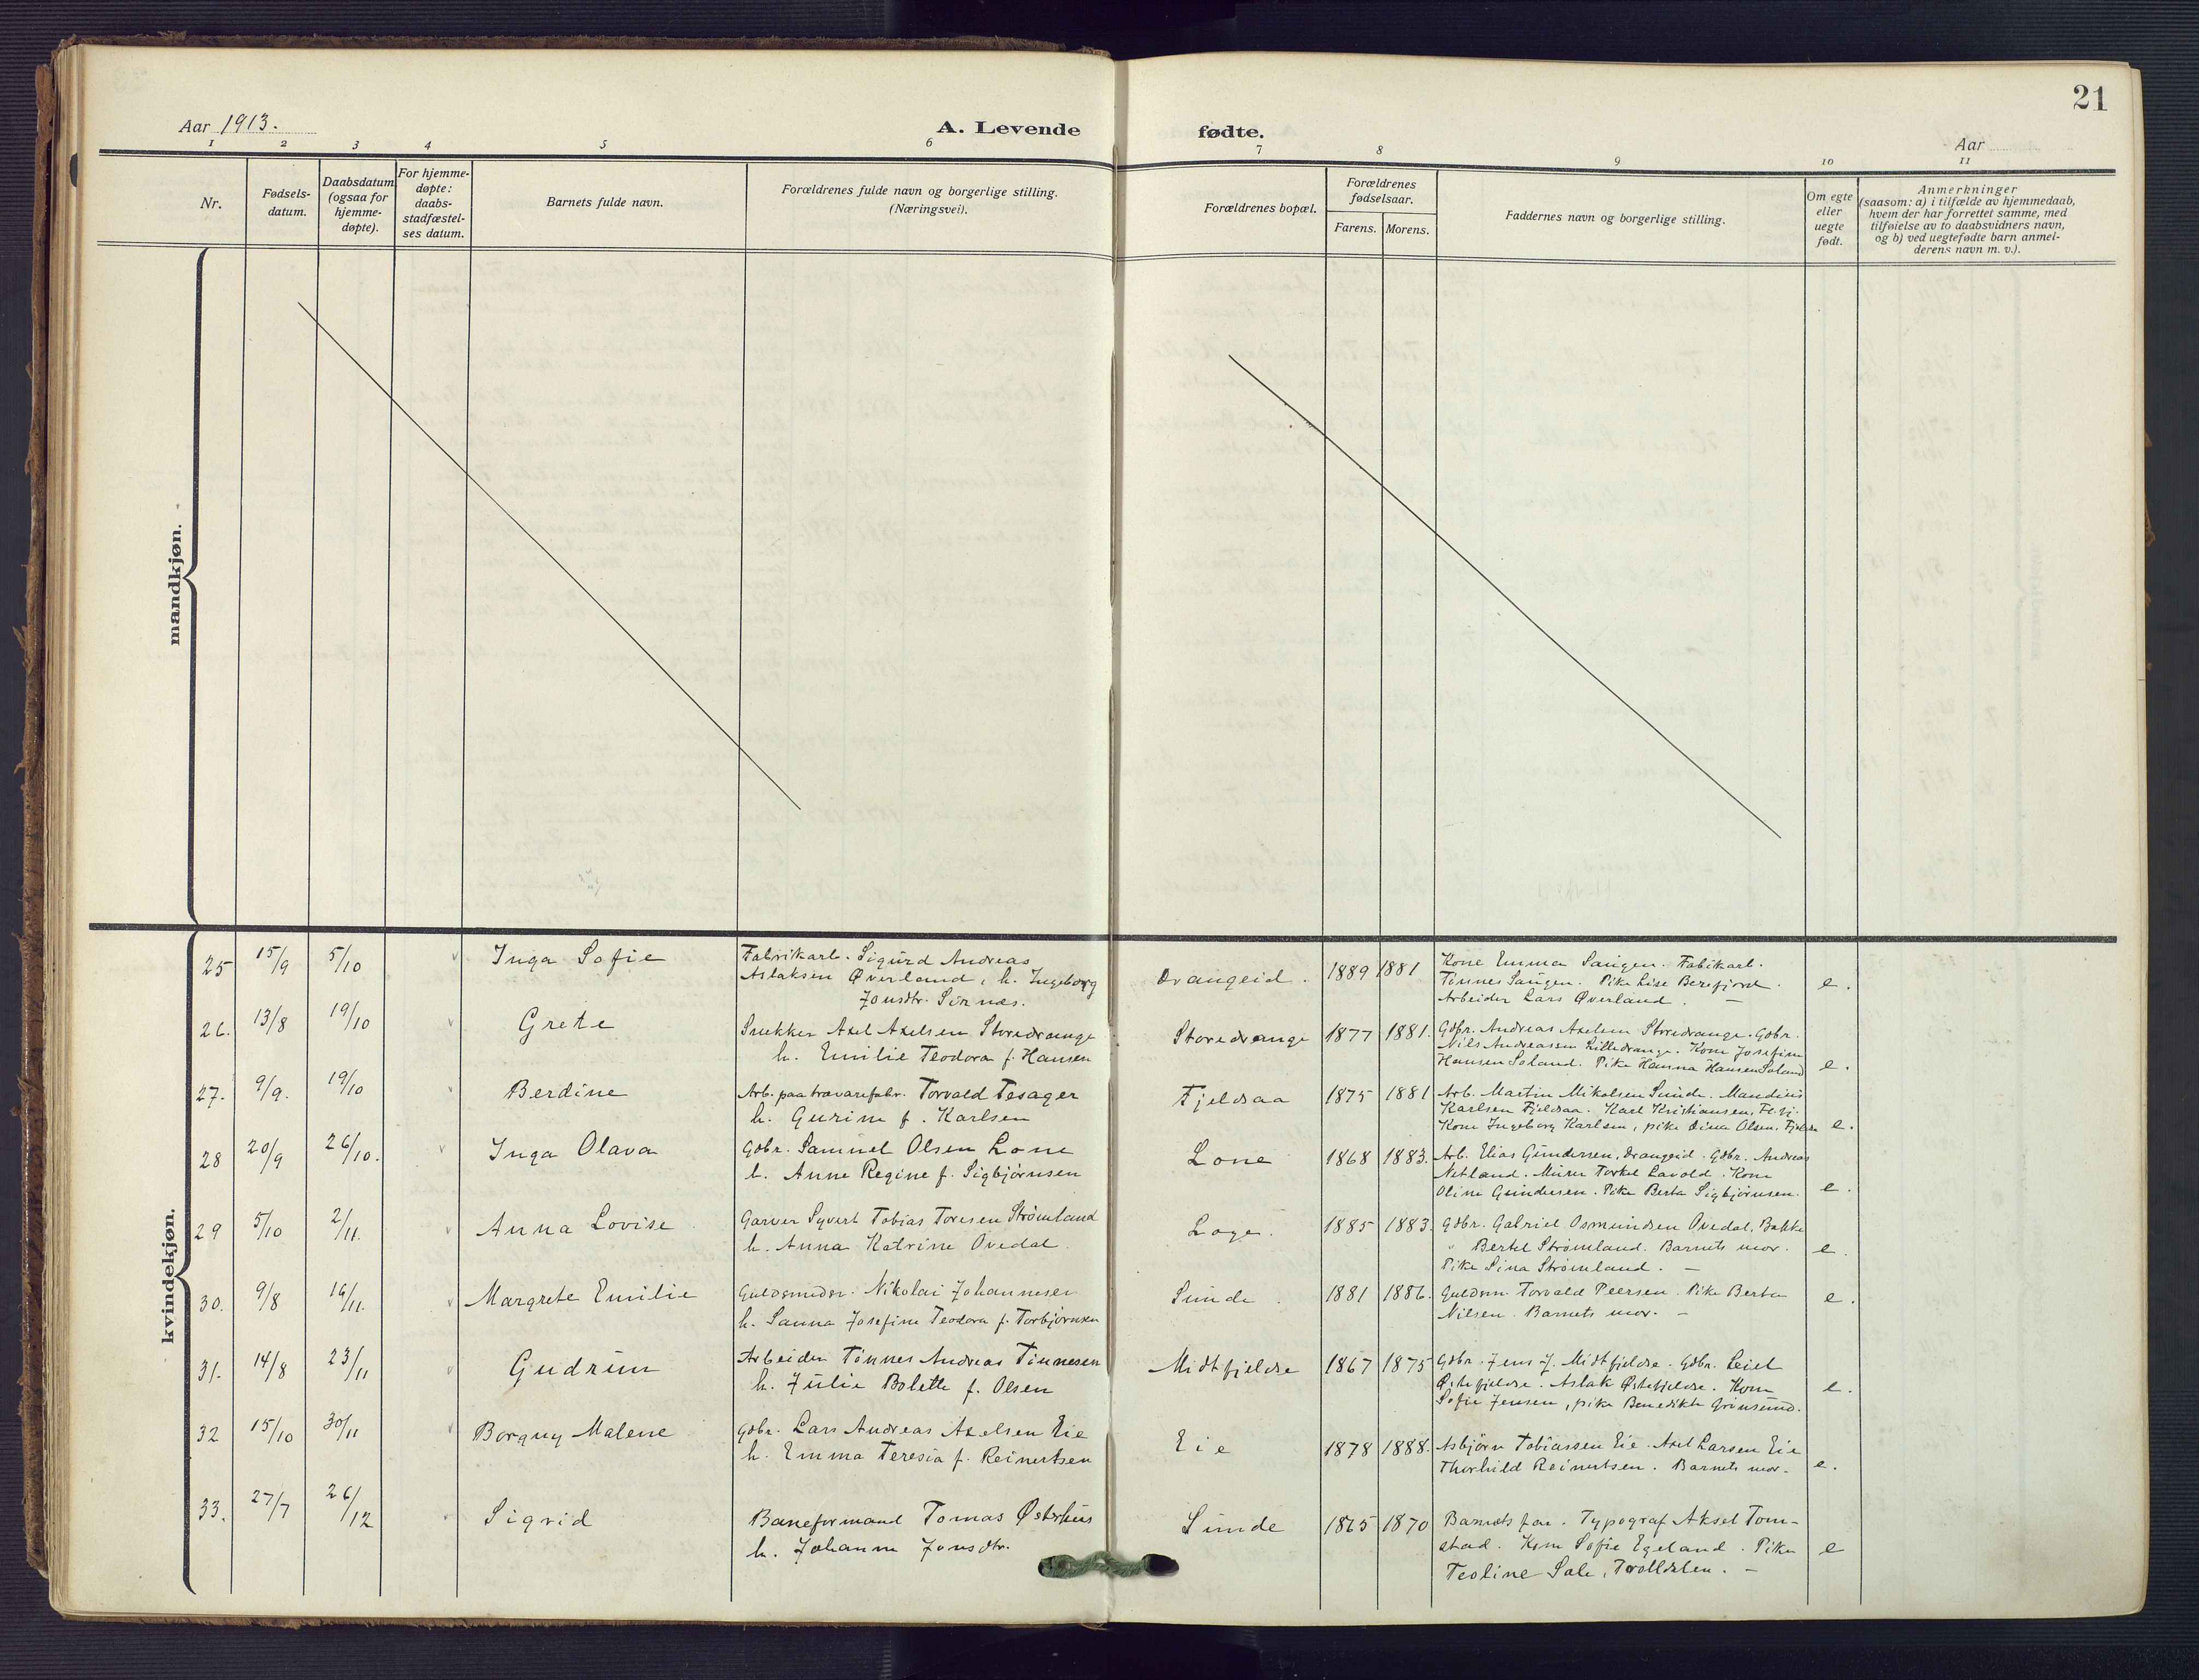 21
Aar 1913.
A. Levende fødte.
Aar
1 2 3 4 5 6 7 8 9 10 11
Nr.
Fødsels-
datum.
Daabsdatum
(ogsaa for
hjemme-
døpte).
For hjemme-
døpte:
daabs-
stadfæstel-
ses datum.
Barnets fulde navn.
Forældrenes fulde navn og borgerlige stilling.
(Næringsvei).
Forældrenes bopæl.
Forældrenes
fødselsaar.
Farens. Morens.
Faddernes navn og borgerlige stilling.
Om egte
eller
uegte
født.
Anmerkninger
(saasom: a) i tilfælde av hjemmedaab,
hvem der har forrettet samme, med
tilføielse av to daabsvidners navn,
og b) ved uegtefødte barn anmel-
derens navn m. v.).
mandkjøn.
kvindekjøn.
25 15/9 5/10 Inga Sofie
Fabrikarb. Sigurd Andreas
Aslaksen Øverland, h. Ingeborg
Jonsdtr. Sirnes.
Drangeid. 1889 1881
Kone Emma Saugen. Fabikarb.
Tønnes Saugen. Pike Lise Berefjord.
Arbeider Lars Øverland. —
e.
26. 13/8 19/10 Grete
Snekker Axel Axelsen Storedrange
h. Emilie Teodora f. Hansen
Storedrange 1877 1881.
Gdbr. Andreas Axelsen Storedrange. Gdbr.
Nils Andreassen Lilledrange. Kone Josefine
Hansen Soland. Pike Hanna Hansen Soland
e.
27. 9/9. 19/10 Berdine
Arb. paa trævarefabr. Torvald Tesager
h. Gurine f. Karlsen
Fjeldsaa 1875 1881
Arb. Martin Mikalsen Sunde. Mandius
Karlsen Fjeldsaa. Karl Kristiansen,
Kone Ingeborg Karlsen, pike Dina Olsen. Fjeldsa
e.
28 20/9 26/10. Inga Olava
Gdbr. Samuel Olsen Lone
h. Anne Regine f. Sigbjørnsen
Lone 1868 1883.
Arb. Elias Gundersen, Drangeid. Gdbr. Andreas
Netland. Murer Torkel Lavold. Kone
Oline Gundersen. Pike Berta Sigbjørnsen.
e.
29 5/10 2/11. Anna Lovise
Garver Syvert Tobias Toresen Strømland
h. Anna Katrine Ovedal.
Loge. 1885 1883.
Gdbr. Gabriel Osmundsen Ovedal, Bakke
" Bertel Strømland. Barnets mor.
Pike Sina Strømland. —
e.
30. 9/8 16/11. Margrete Emilie
Guldsmedsv. Nikolai Johannesen
h. Sanna Josefine Teodora f. Torbjørnsen
Sunde. 1881 1886.
Guldsm. Torvald Peersen. Pike Berta
Nilsen. Barnets mor. —
e.
31. 14/8 23/11 Gudrun
Arbeider Tønnes Andreas Tønnesen
h. Julie Bolette f. Olsen
Midtfjeldse 1867 1875
Gdbr. Jens J. Midtfjeldse. Gdbr. Leiel
Østefjeldse. Aslak Østefjeldse. Kone
Sofie Jensen, pike Benedikte Grønsund.
e.
32 15/10 30/11 Borgny Malene
Gdbr. Lars Andreas Axelsen Eie
h. Emma Teresia f. Reinertsen
Eie 1878 1888.
Asbjørn Tobiassen Eie. Axel Larsen Eie
Thorhild Reinertsen. Barnets mor.
e.
33. 27/7 26/12 Sigrid
Baneformand Tomas Østerhus
h. Johanne Jonsdtr.
Sunde 1865 1870
Barnets far. Typograf Aksel Tom-
stad. Kone Sofie Egeland. Pike
Teoline Sale, Trolldalen. —
e